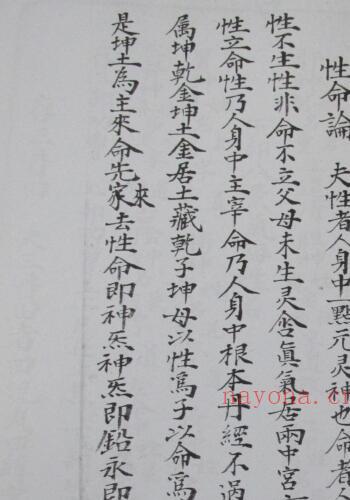 性命論 夫性者人身中一點元灵神也命者
性不生性非命不立父母未生灵舍真氣居兩中宮
性立命性乃人身中主宰命乃人身中根本丹經不過
属坤乾金坤土金居土藏乾子坤母以性為子以命為
是坤土為主來命先家來去性命即神炁神炁即鉛永即
nayona.cn